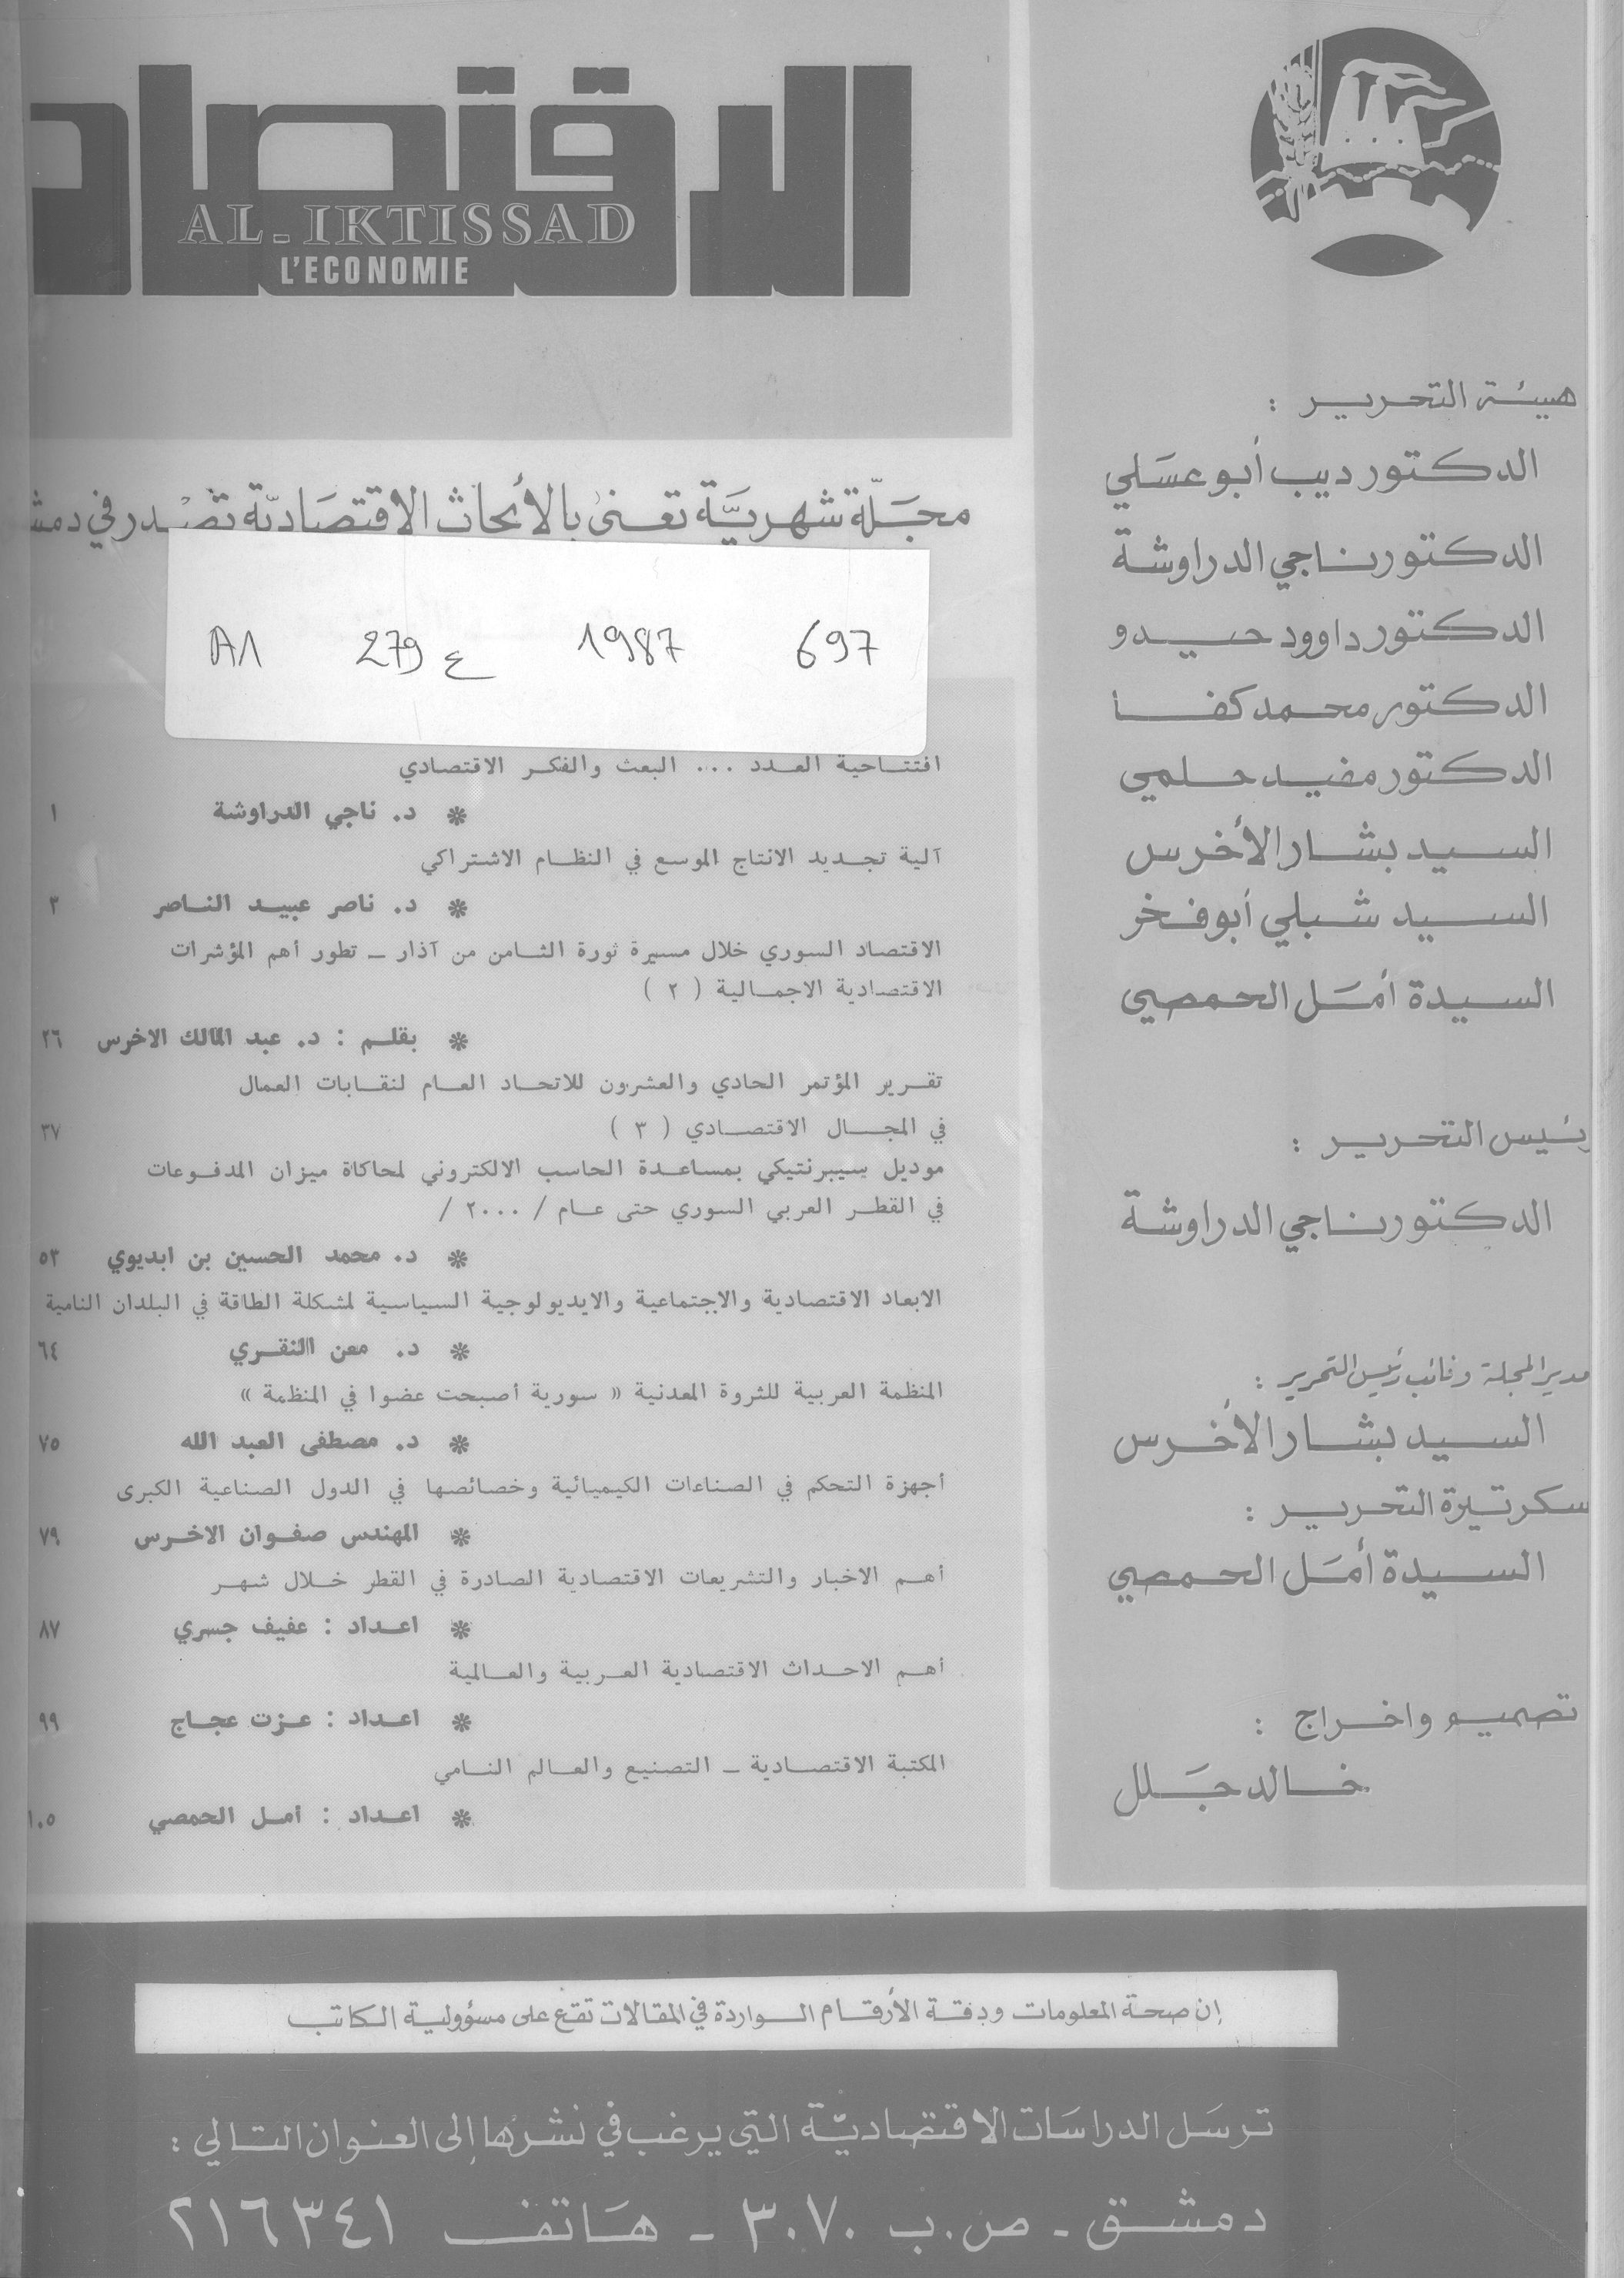 هيئة التحرير :
الدكتور ديب أبو عسَلي
الدكتور ناجي الدراوشة
الدكتور داوود حيدو
الدكتور محمد كفا
الدكتور مفيد حلمي
السيد بشار الأخرس
السيد شبلي أبو فخر
السيدة أمَل الحمصي
رئيس التحرير :
الدكتور ناجي الدراوشة
مدير المجلة ونائب رئيس التحرير :
السيد بشار الأخرس
سكرتيرة التحرير :
السيدة أمَل الحمصي
تصميم واخراج :
خالد جَلل
الاقتصاد
AL-IKTISSAD
L'ECONOMIE
مجَلّة شهريَّة تعنى بالأبحاث الاقتصَاديّة تصْدر في دمش
A1 279 ع 1987 697
افتتاحية العدد ... البعث والفكر الاقتصادي
* د. ناجي الدراوشة ١
آلية تجديد الانتاج الموسع في النظام الاشتراكي
* د. ناصر عبيد الناصر ٣
الاقتصاد السوري خلال مسيرة ثورة الثامن من آذار ــ تطور أهم المؤشرات
الاقتصادية الاجمالية ( ٢ )
* بقلم : د. عبد المالك الاخرس ٢٦
تقرير المؤتمر الحادي والعشرون للاتحاد العام لنقابات العمال
في المجال الاقتصادي ( ٣ ) ٣٧
موديل سيبرنتيكي بمساعدة الحاسب الالكتروني لمحاكاة ميزان المدفوعات
في القطر العربي السوري حتى عام / ٢٠٠٠ /
* د. محمد الحسين بن ابديوي ٥٣
الابعاد الاقتصادية والاجتماعية والايديولوجية السياسية لمشكلة الطاقة في البلدان النامية
* د. معن النقري ٦٤
المنظمة العربية للثروة المعدنية « سورية أصبحت عضوا في المنظمة »
* د. مصطفى العبد الله ٧٥
أجهزة التحكم في الصناعات الكيميائية وخصائصها في الدول الصناعية الكبرى
* المهندس صفوان الاخرس ٧٩
أهم الاخبار والتشريعات الاقتصادية الصادرة في القطر خلال شهر
* اعداد : عفيف جسري ٨٧
أهم الاحداث الاقتصادية العربية والعالمية
* اعداد : عزت عجاج ٩٩
المكتبة الاقتصادية ــ التصنيع والعالم النامي
* اعداد : أمل الحمصي ١٠٥
إن صحة المعلومات ودقة الأرقام الواردة في المقالات تقع على مسؤولية الكاتب
ترسَل الدراسَات الاقتصاديّة التي يرغب في نشرها إلى العنوان التالي :
دمشق ـ ص.ب ٣٠٧٠ ـ هَاتف ٢١٦٣٤١